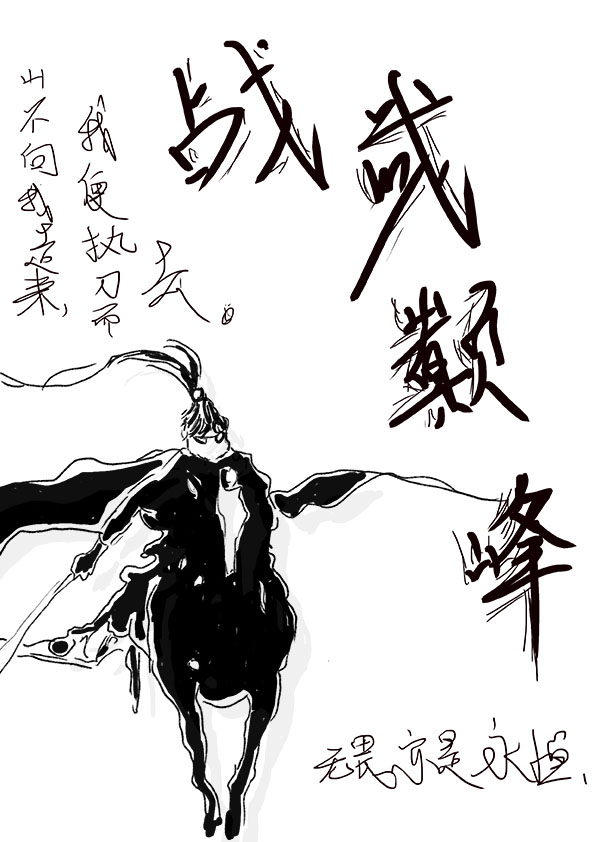 战武巅峰
山不向我走来,
我便执刀而
去。
无畏亦是永恒、